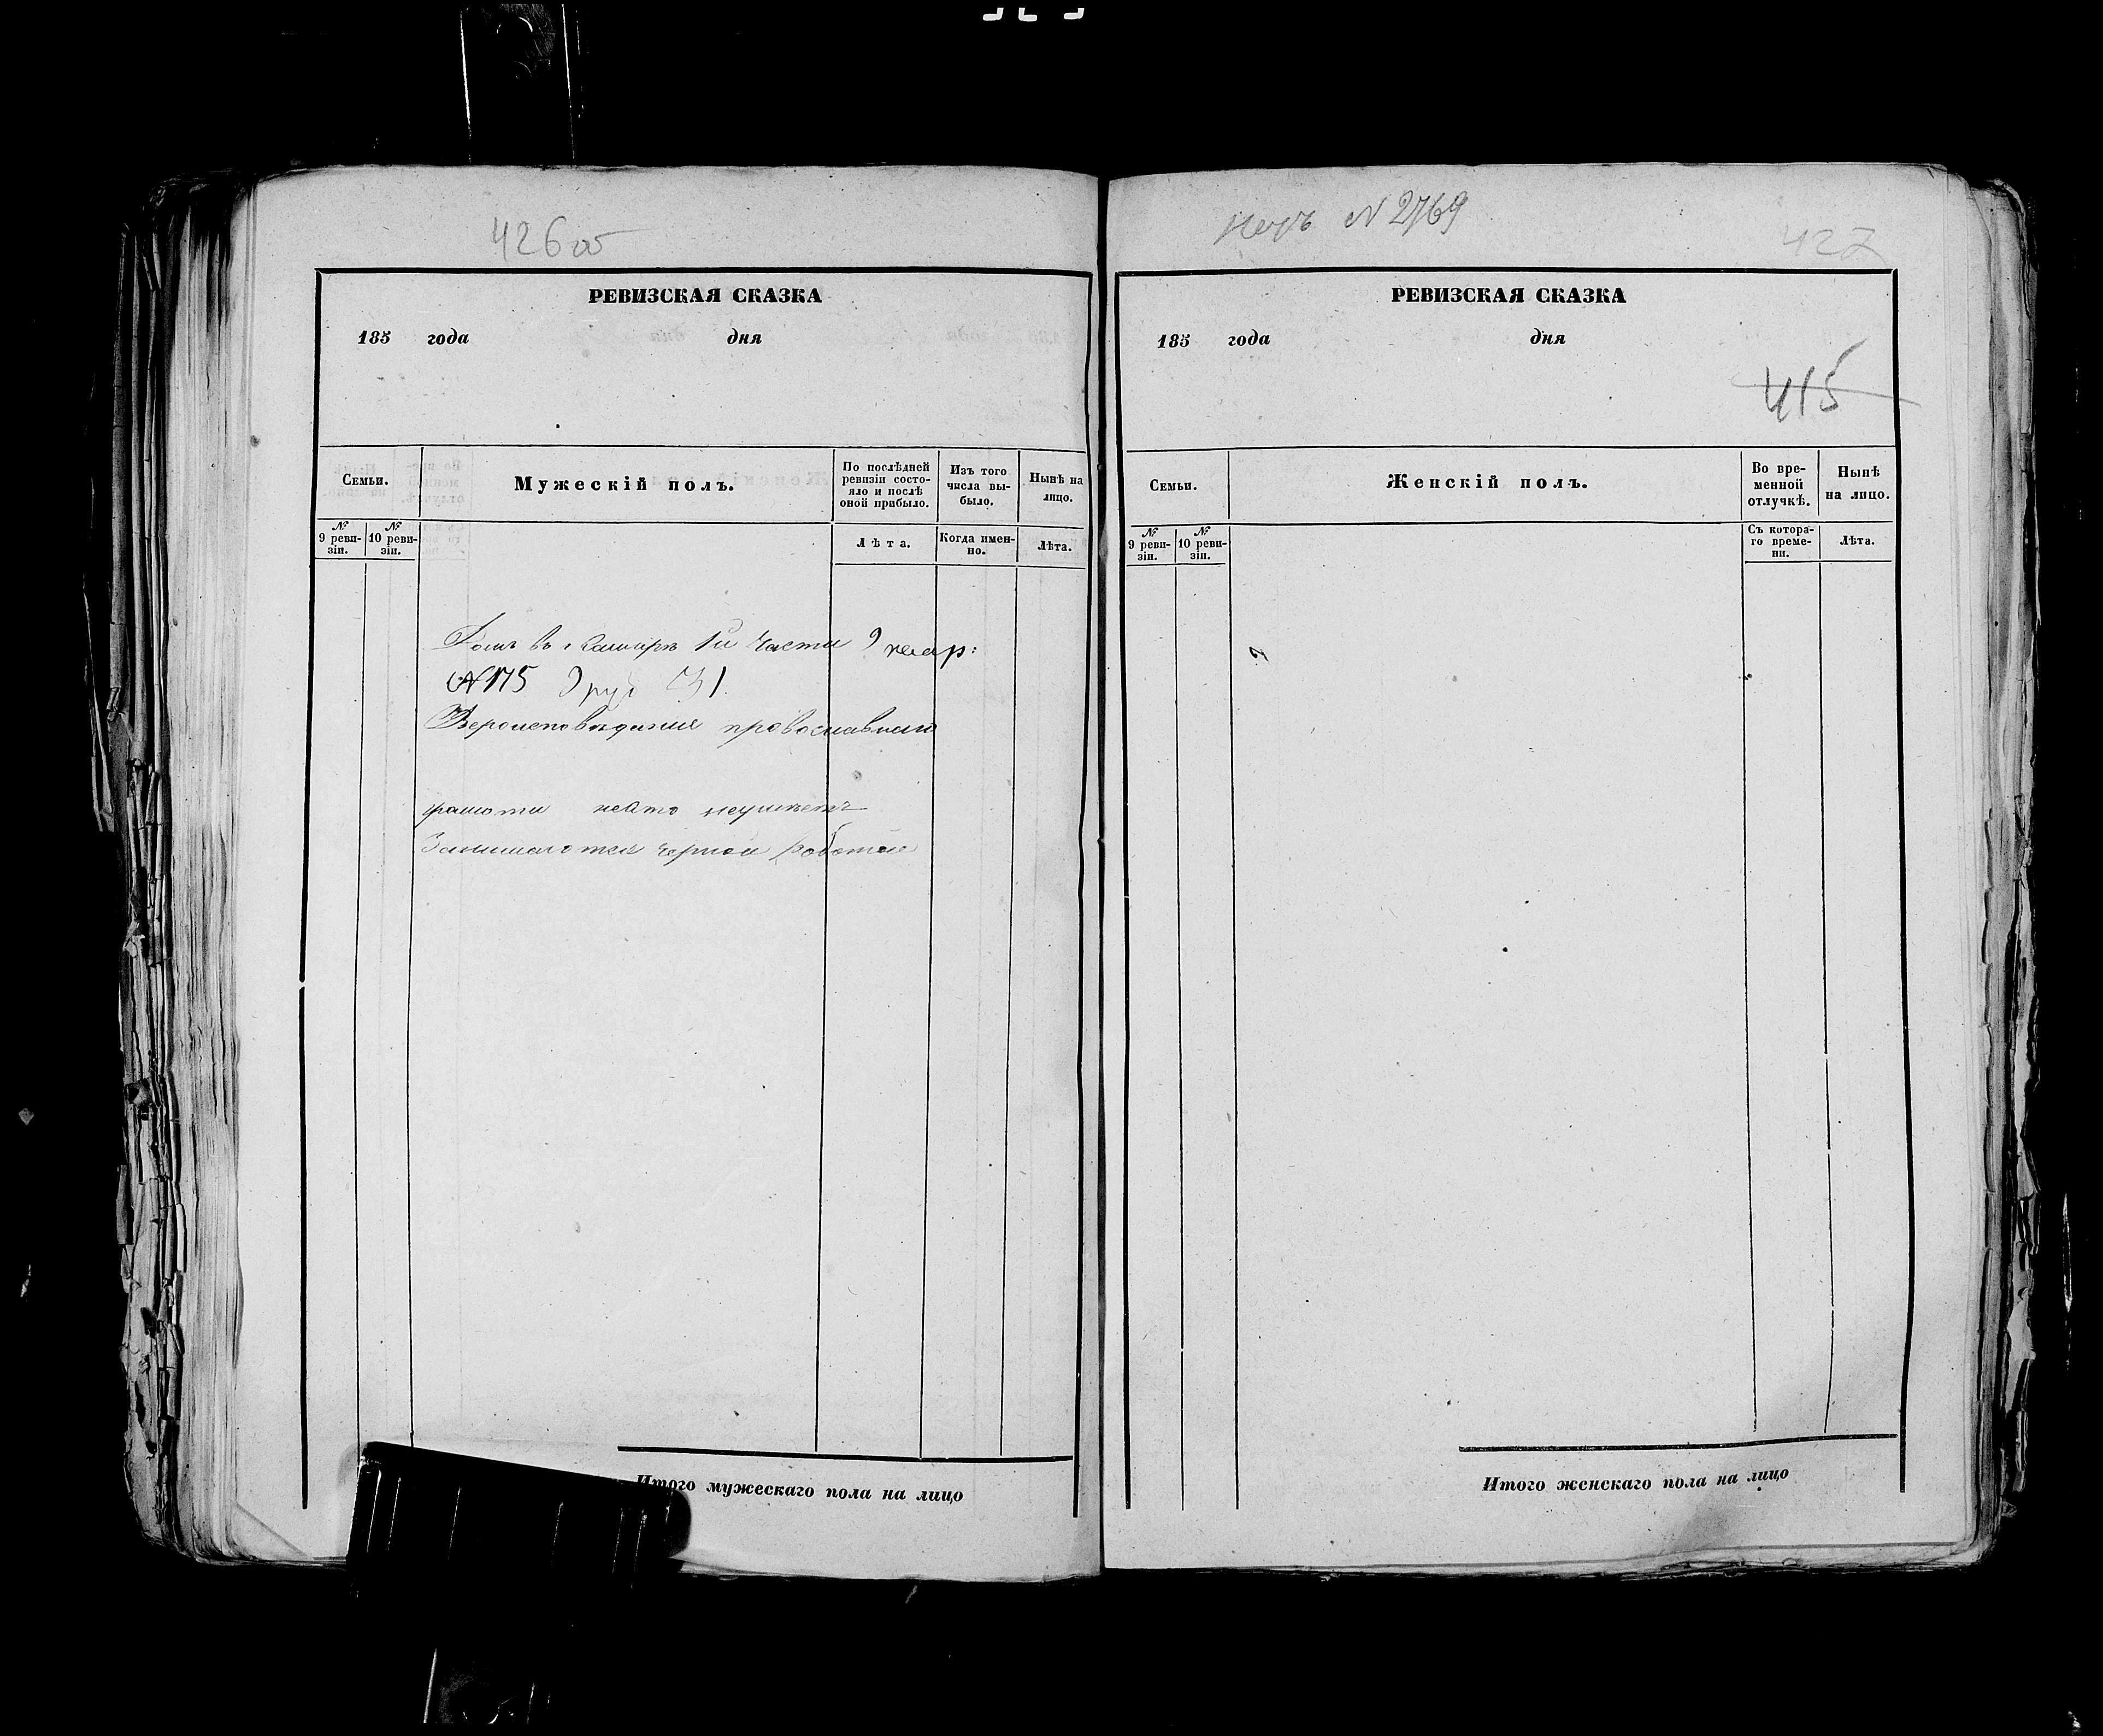 426об
РЕВИЗСКАЯ СКАЗКА
185 года дня
Семьи.
Мужескій полъ.
По послѣдней ревизіи состо-яло и послѣ оной прибыло.
Изъ того числа вы-было.
Нынѣ на лицо.
№ 9 реви-зіи.
№ 10 реви-зіи.
Лѣта.
Когда имен-но.
Лѣта.
Домъ въ 1й части 9 квар:
№ 175
Вероисповѣдания православнаго
грамоти неумѣетъ
Занимаются черной работой
Итого мужескаго пола на лицо
№ 2769
427
РЕВИЗСКАЯ СКАЗКА
185 года дня
415
Семьи.
Женскій полъ.
Во вре-менной отлучкѣ.
Нынѣ на лицо.
№ 9 реви-зіи.
№ 10 реви-зіи.
Съ котора-го време-ни.
Лѣта.
Итого женскаго пола на лицо